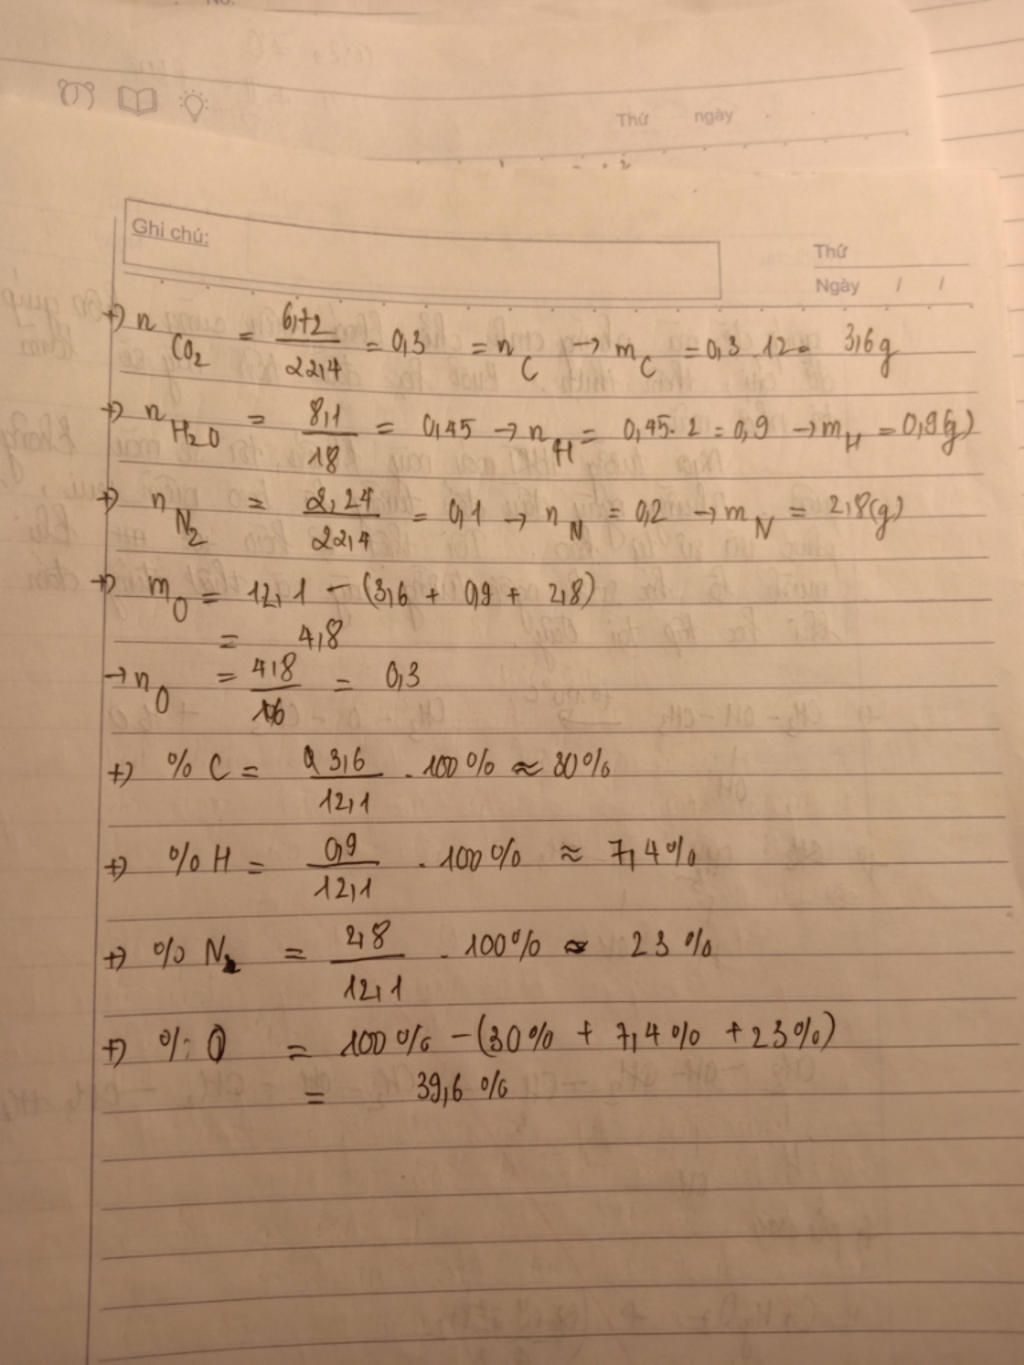 Thứ ngày
Ghi chú:
Thứ
Ngày / /
+) n CO2 = 6,72/22,4 = 0,3 = nC → mC = 0,3 . 12 = 3,6g
+) n H2O = 8,1/18 = 0,45 → nH = 0,45 . 2 = 0,9 → mH = 0,9(g)
+) n N2 = 2,24/22,4 = 0,1 → nN = 0,2 → mN = 2,8(g)
+) mO = 12,1 - (3,6 + 0,9 + 2,8)
= 4,8
→ nO = 4,8/16 = 0,3
+) % C = 3,6/12,1 . 100% ≈ 30%
+) % H = 0,9/12,1 . 100% ≈ 7,4%
+) % N = 2,8/12,1 . 100% ≈ 23%
+) % O = 100% - (30% + 7,4% + 23%)
= 39,6 %